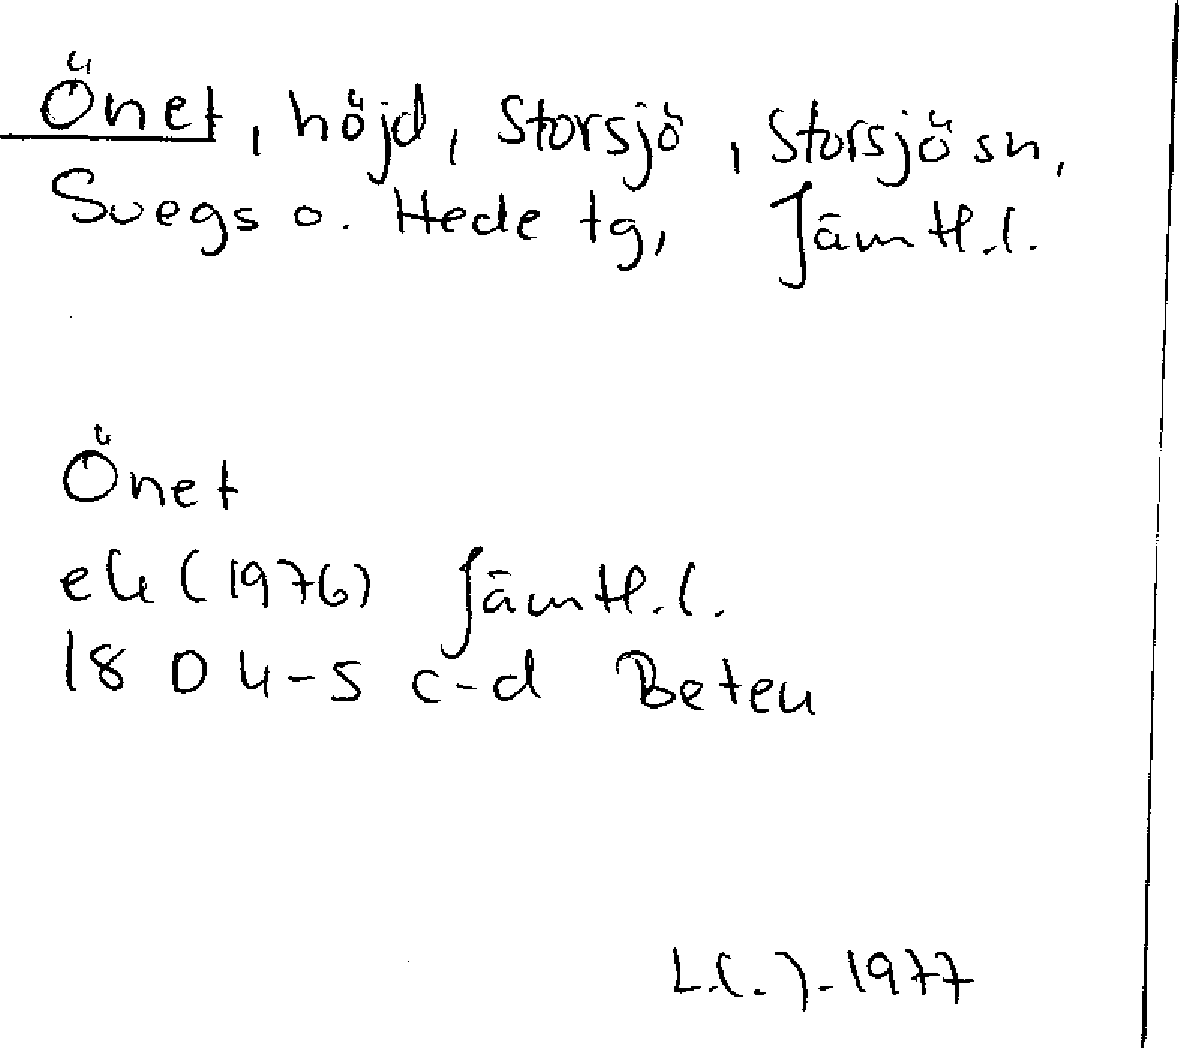 Önet, höjd, Storsjö, Storsjö sn,
Svegs o. Hede tg, Jämtl.l.
Önet
ek (1976) Jämtl.l.
18 D 4-5 c-d Beten
1977